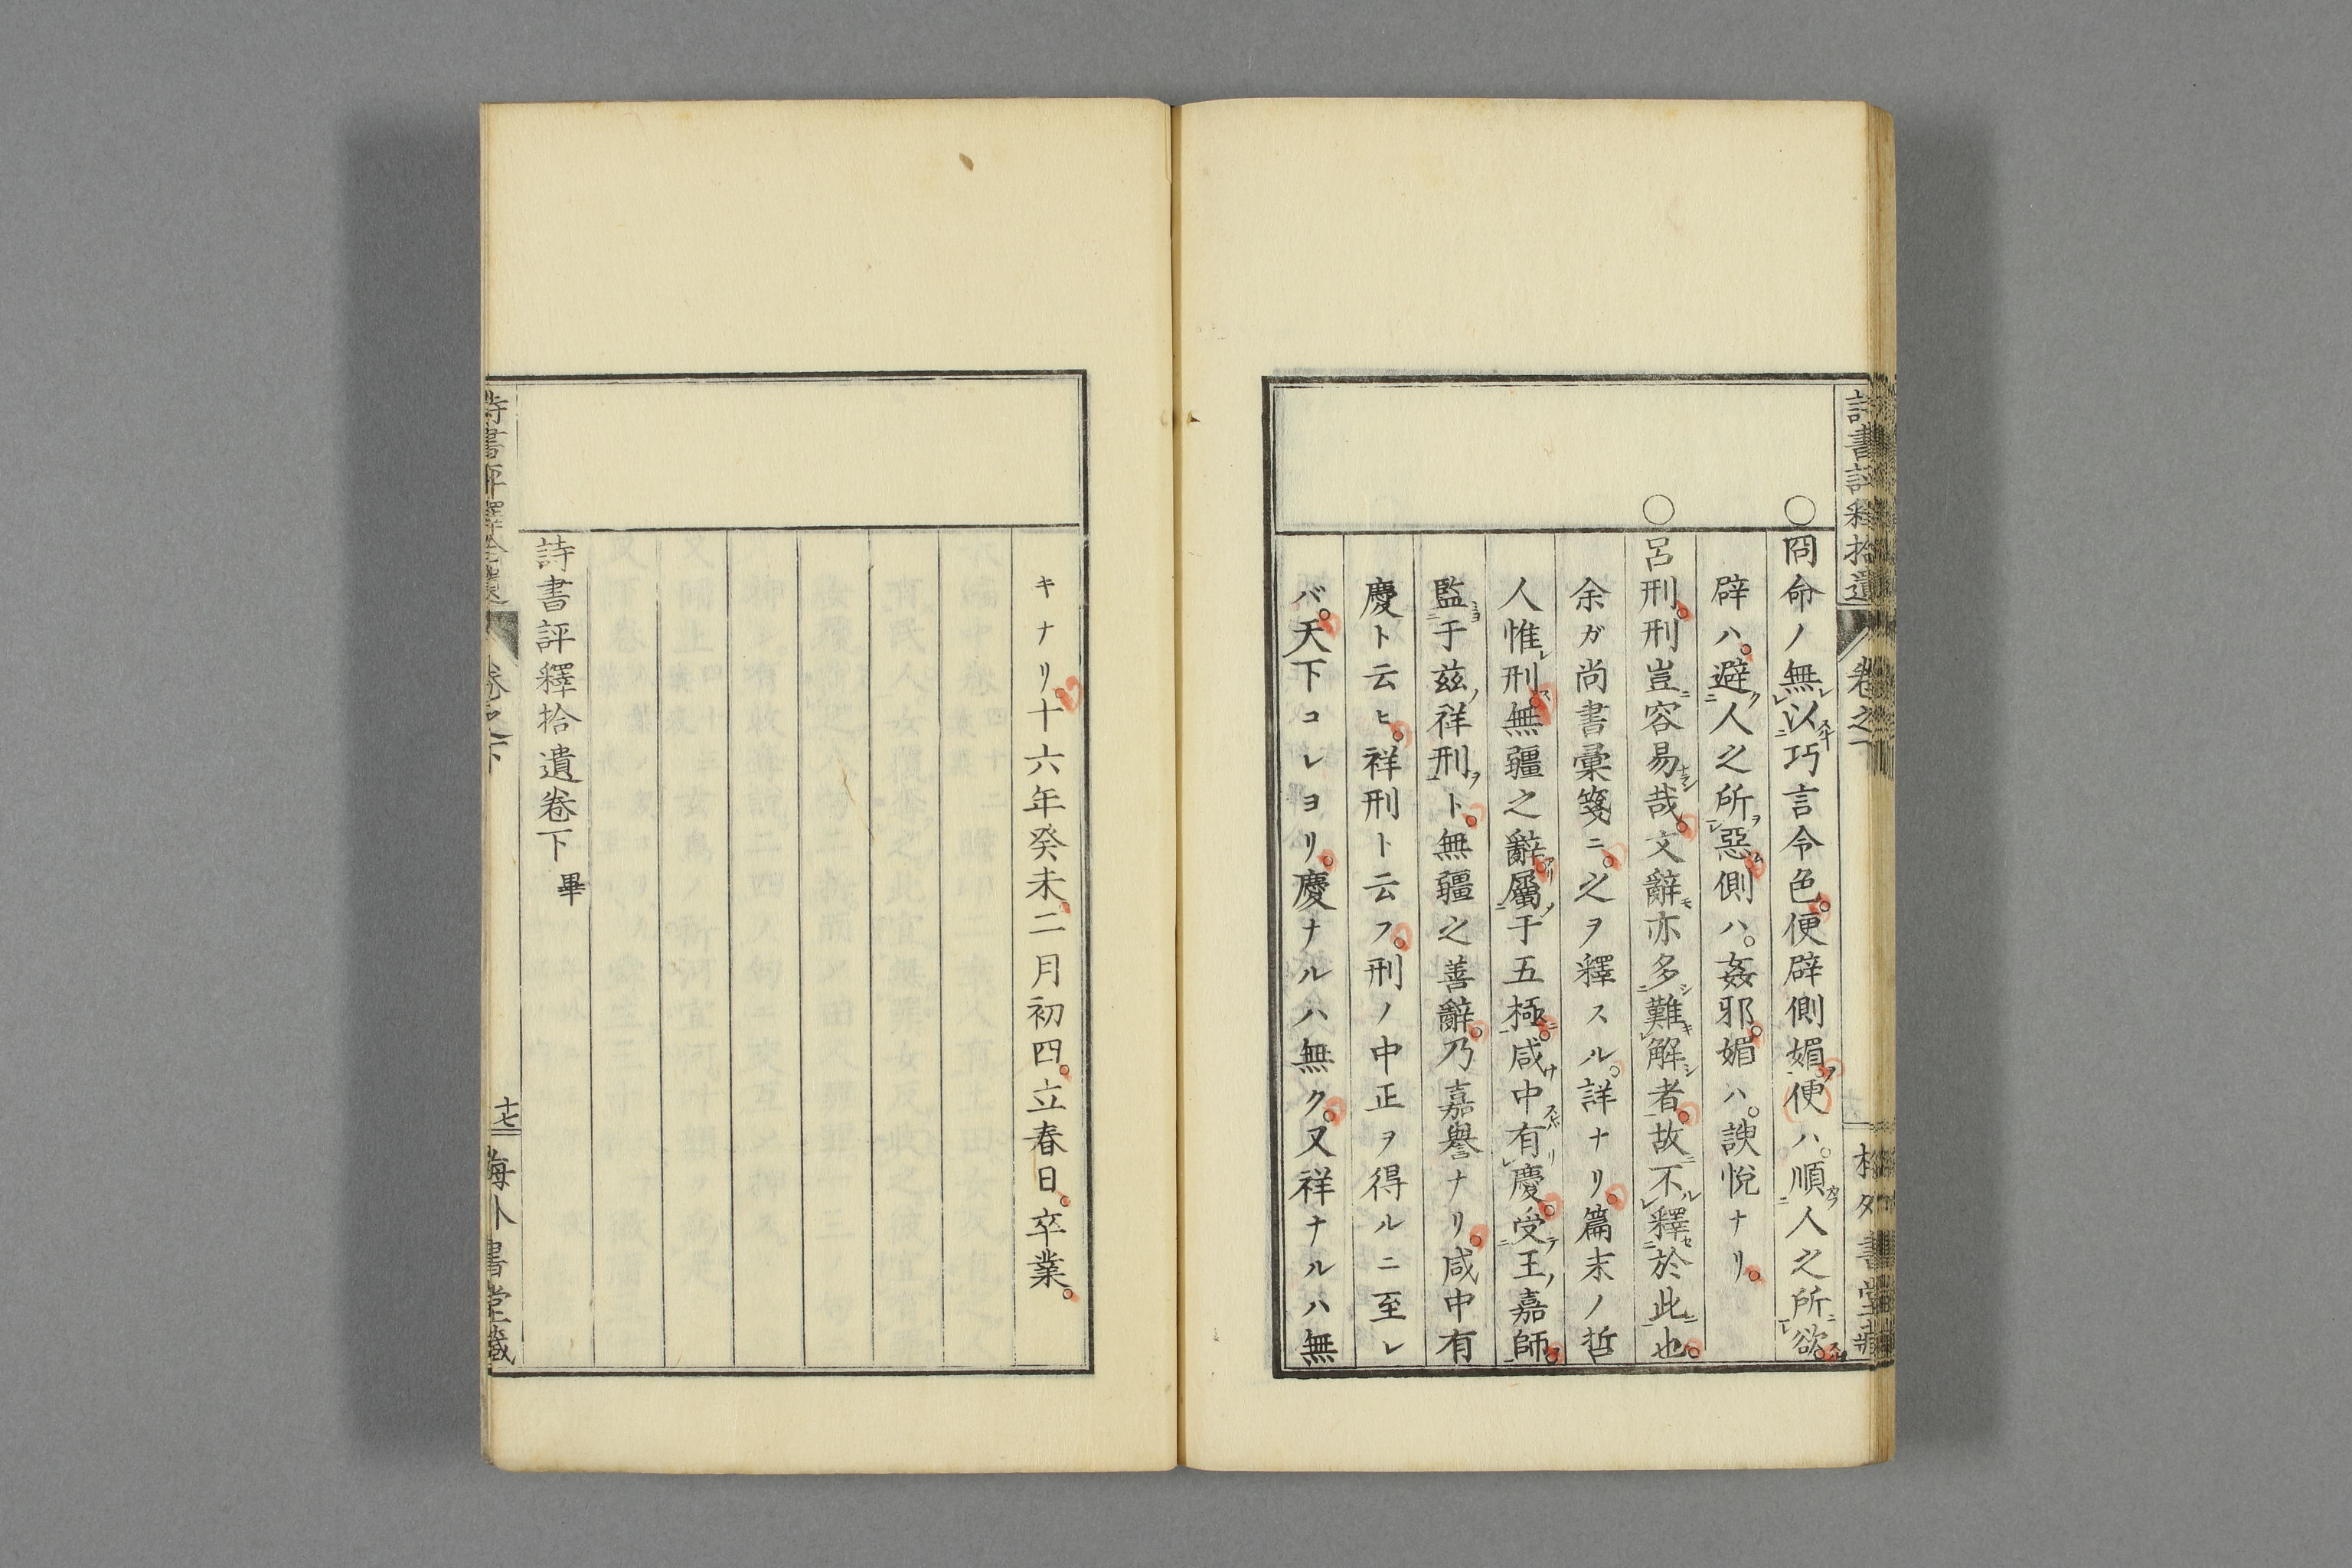 詩書評釋拾遺 卷之下
○冏命ノ無以巧言令色。便辟側媚。便ハ。順人之所欲。
辟ハ。避人之所惡。側ハ。姦邪。媚ハ。諛悅ナリ。
○呂刑。刑豈容易哉。文辭亦多難解者。故不釋於此也。
余ガ尚書彙箋ニ。之ヲ釋スル。詳ナリ。篇末ノ哲
人惟刑。無疆之辭。屬于五極。咸中有慶。受王嘉師。
監于茲祥刑ト。無疆之善辭。乃嘉譽ナリ。咸中有
慶ト云ヒ。祥刑ト云フ。刑ノ中正ヲ得ルニ至レ
バ。天下コレヨリ。慶ナルハ無ク。又祥ナルハ無
キナリ。十六年癸未。二月初四。立春日。卒業。
詩書評釋拾遺卷下 畢
詩書評釋拾遺 卷之下 十七 海外書堂藏